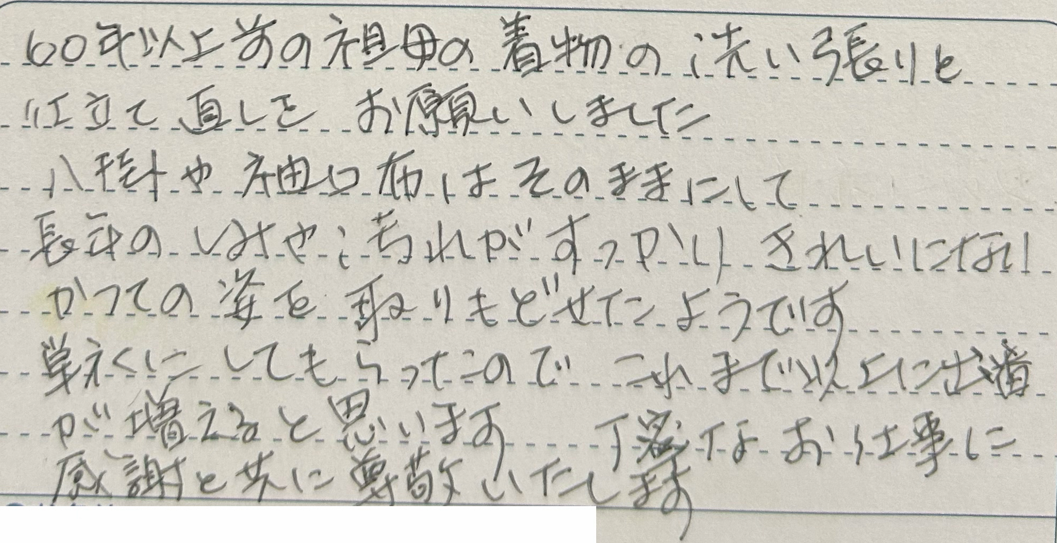 60年以上前の祖母の着物の洗い張りと
仕立て直しを お願いしました
八掛や袖口布はそのままにして
長年のしみや汚れがすっかり きれいになり
かつての姿を 取りもどせたようです
単衣にしてもらったので これまで以上に出番
が増えると思います 丁寧なお仕事に
感謝と共に尊敬いたします